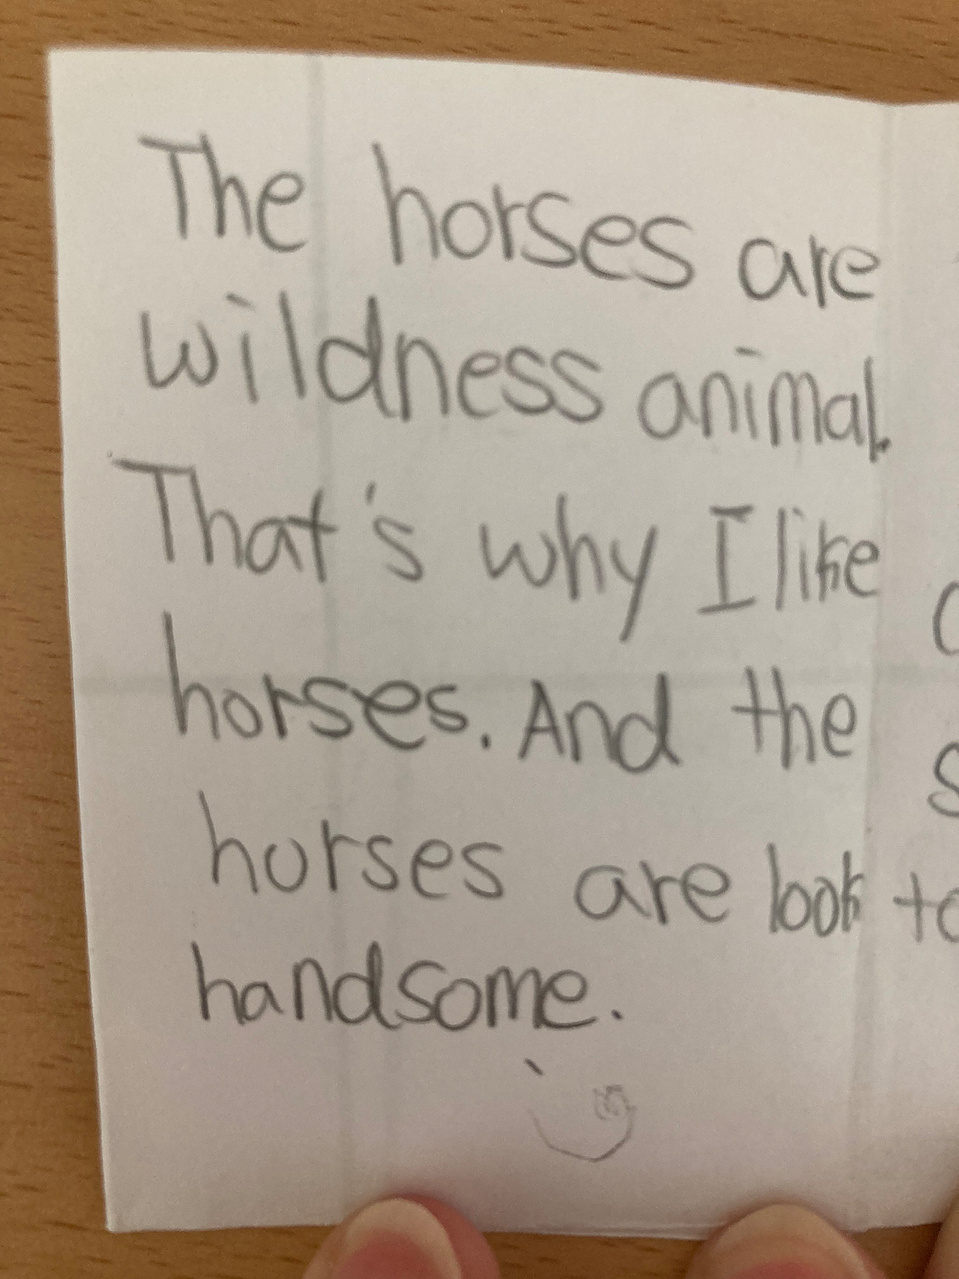 The horses are
wildness animal.
That's why I like
horses. And the
horses are look
handsome.